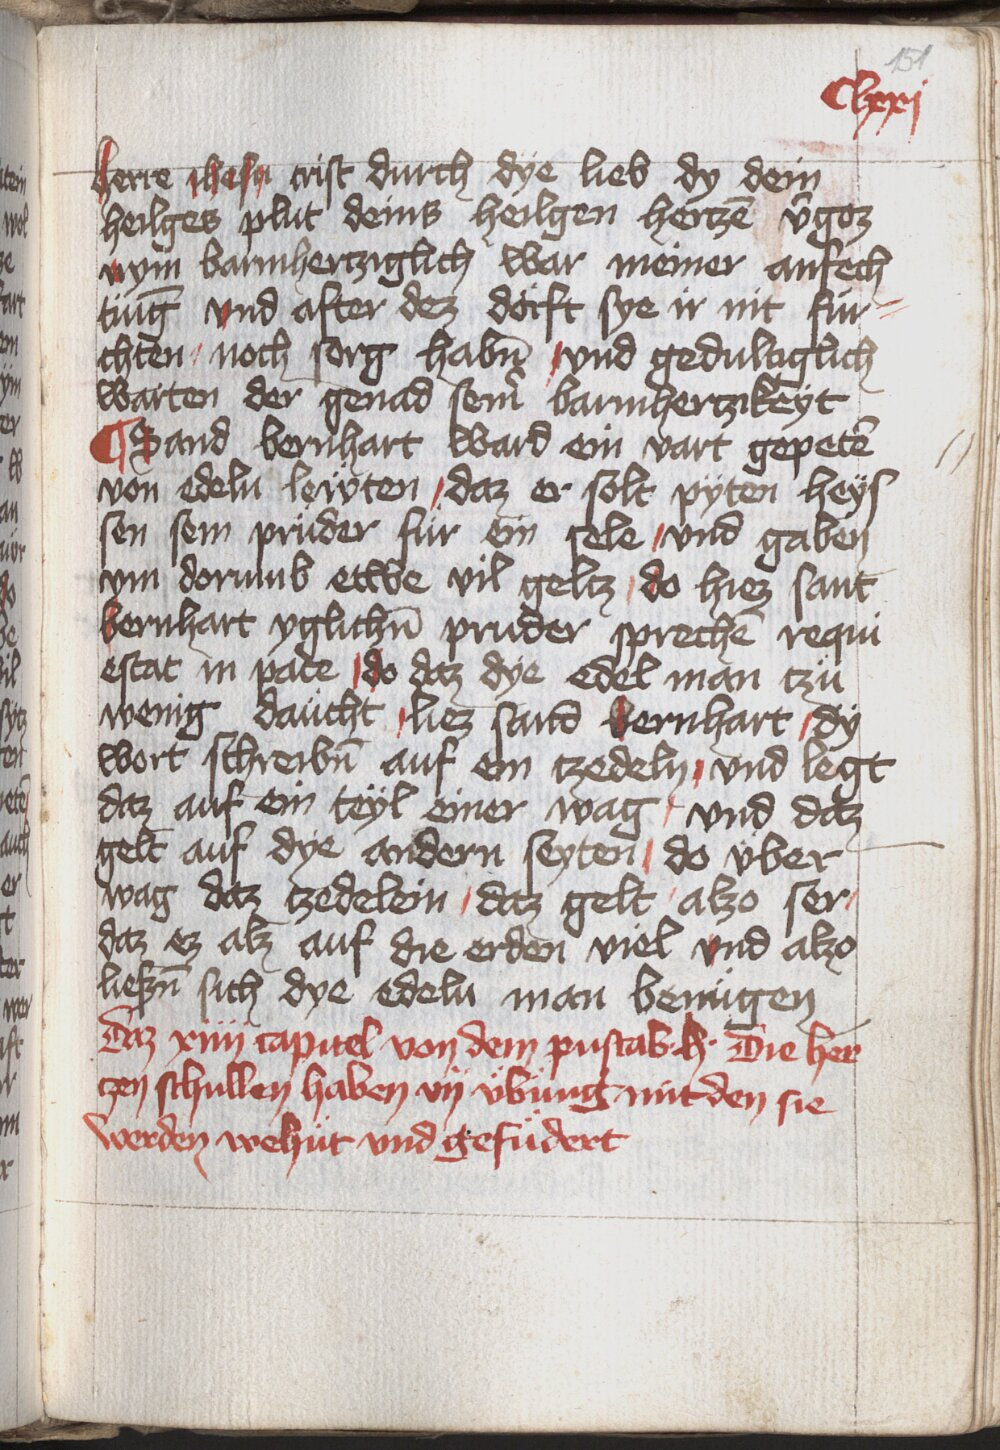 151
Clxxj
herre ihesu crist durch dye lieb dy dein
heilges plut deins heilgen hertzē v̄goz
nym barmhertziglich war meiner anfech
tūg und after dez dörft sye ir nit für
chten / noch sorg habn̄ / vnd gedultiglich
warten der genad sein̄ barmhertzikeyt
¶ Sand bernhart ward ein vart gepetē
von edeln leẅten / daz er solt pÿten heÿs
sen sein prüder für ein sele / vnd gaben
ym dorumb ettwe vil geltz / do hiez sant
bernhart yglichn̄ pruder sprechē requi
escat in pace / do daz dye edel man tzü
wenig daücht / liez sand bernhart / dy
wort schreibn̄ auf ein tzedeln / vnd legt
daz auf ein teÿl einer wag / vnd daz
gelt auf dye andern seyten / do über
wag daz tzedelein / daz gelt / alzo ser /
daz ez alz auf die erden viel vnd alzo
liessn̄ sich dye edeln man benügen
Daz xiiii capitel von dem pustab · h · Die her
tzen schullen haben vij übūng mit den sie
werden wehüt vnd gefüdert